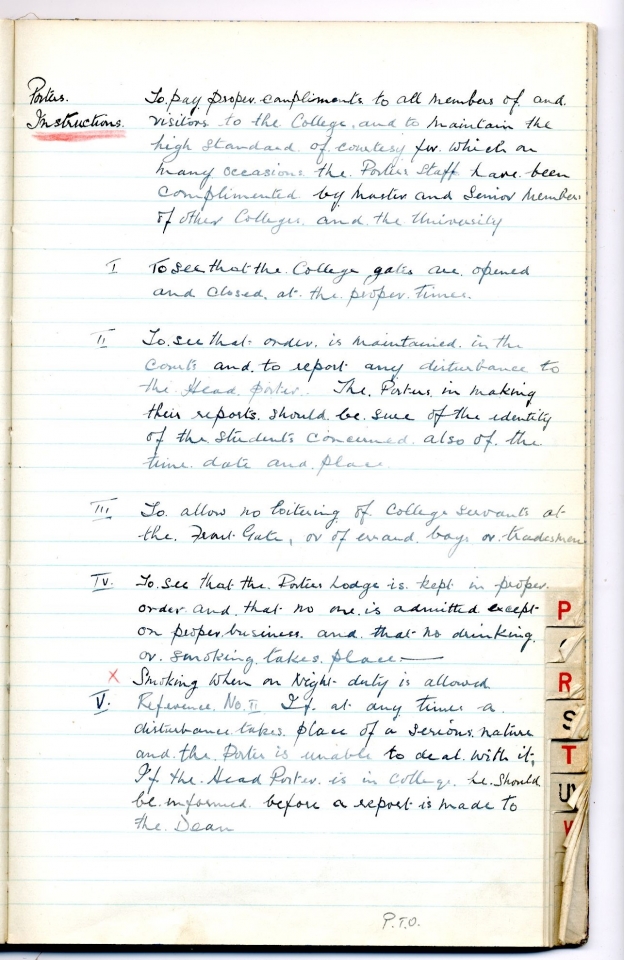 Porters.
Instructions.
To pay proper compliments to all members of and
visitors to the College, and to maintain the
high standard of courtesy for which on
many occasions the Porters Staff have been
complimented by Master and Senior Members
of other Colleges and the University
I To see that the College gates are opened
and closed at the proper times.
II To see that order is maintained in the
Courts and to report any disturbance to
the Head porter. The Porters in making
their reports should be sure of the identity
of the students concerned also of the
time date and place.
III To allow no loitering of College servants at
the Front Gate, or of errand boys or tradesmen
IV. To see that the Porters Lodge is kept in proper
order and that no one is admitted except
on proper business and that no drinking
or smoking takes place —
X Smoking when on Night duty is allowed
V. Reference No. II If at any times a
disturbance takes place of a serious nature
and the Porter is unable to deal with it,
If the Head Porter is in College he should
be informed before a report is made to
the Dean
P.T.O.
P
R
S
T
U